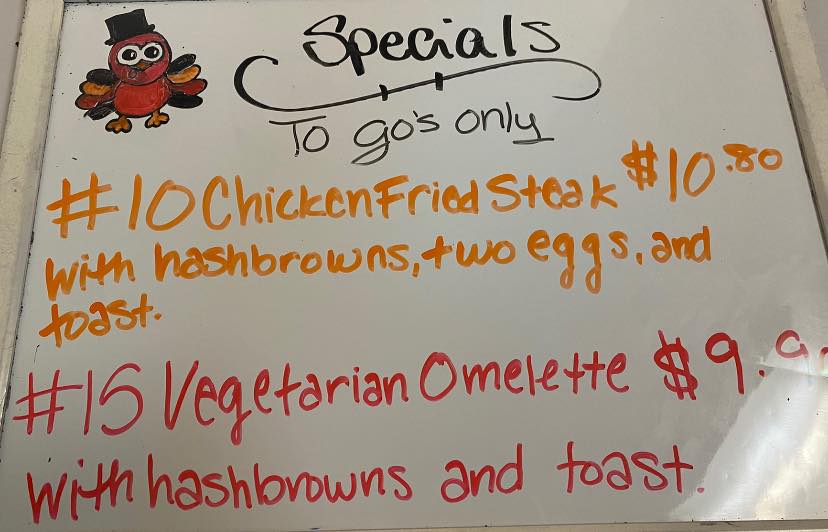 Specials
To go's only
#10 Chicken Fried Steak $10.80
with hashbrowns, two eggs, and
toast.
#15 Vegetarian Omelette $9.9
with hashbrowns and toast.